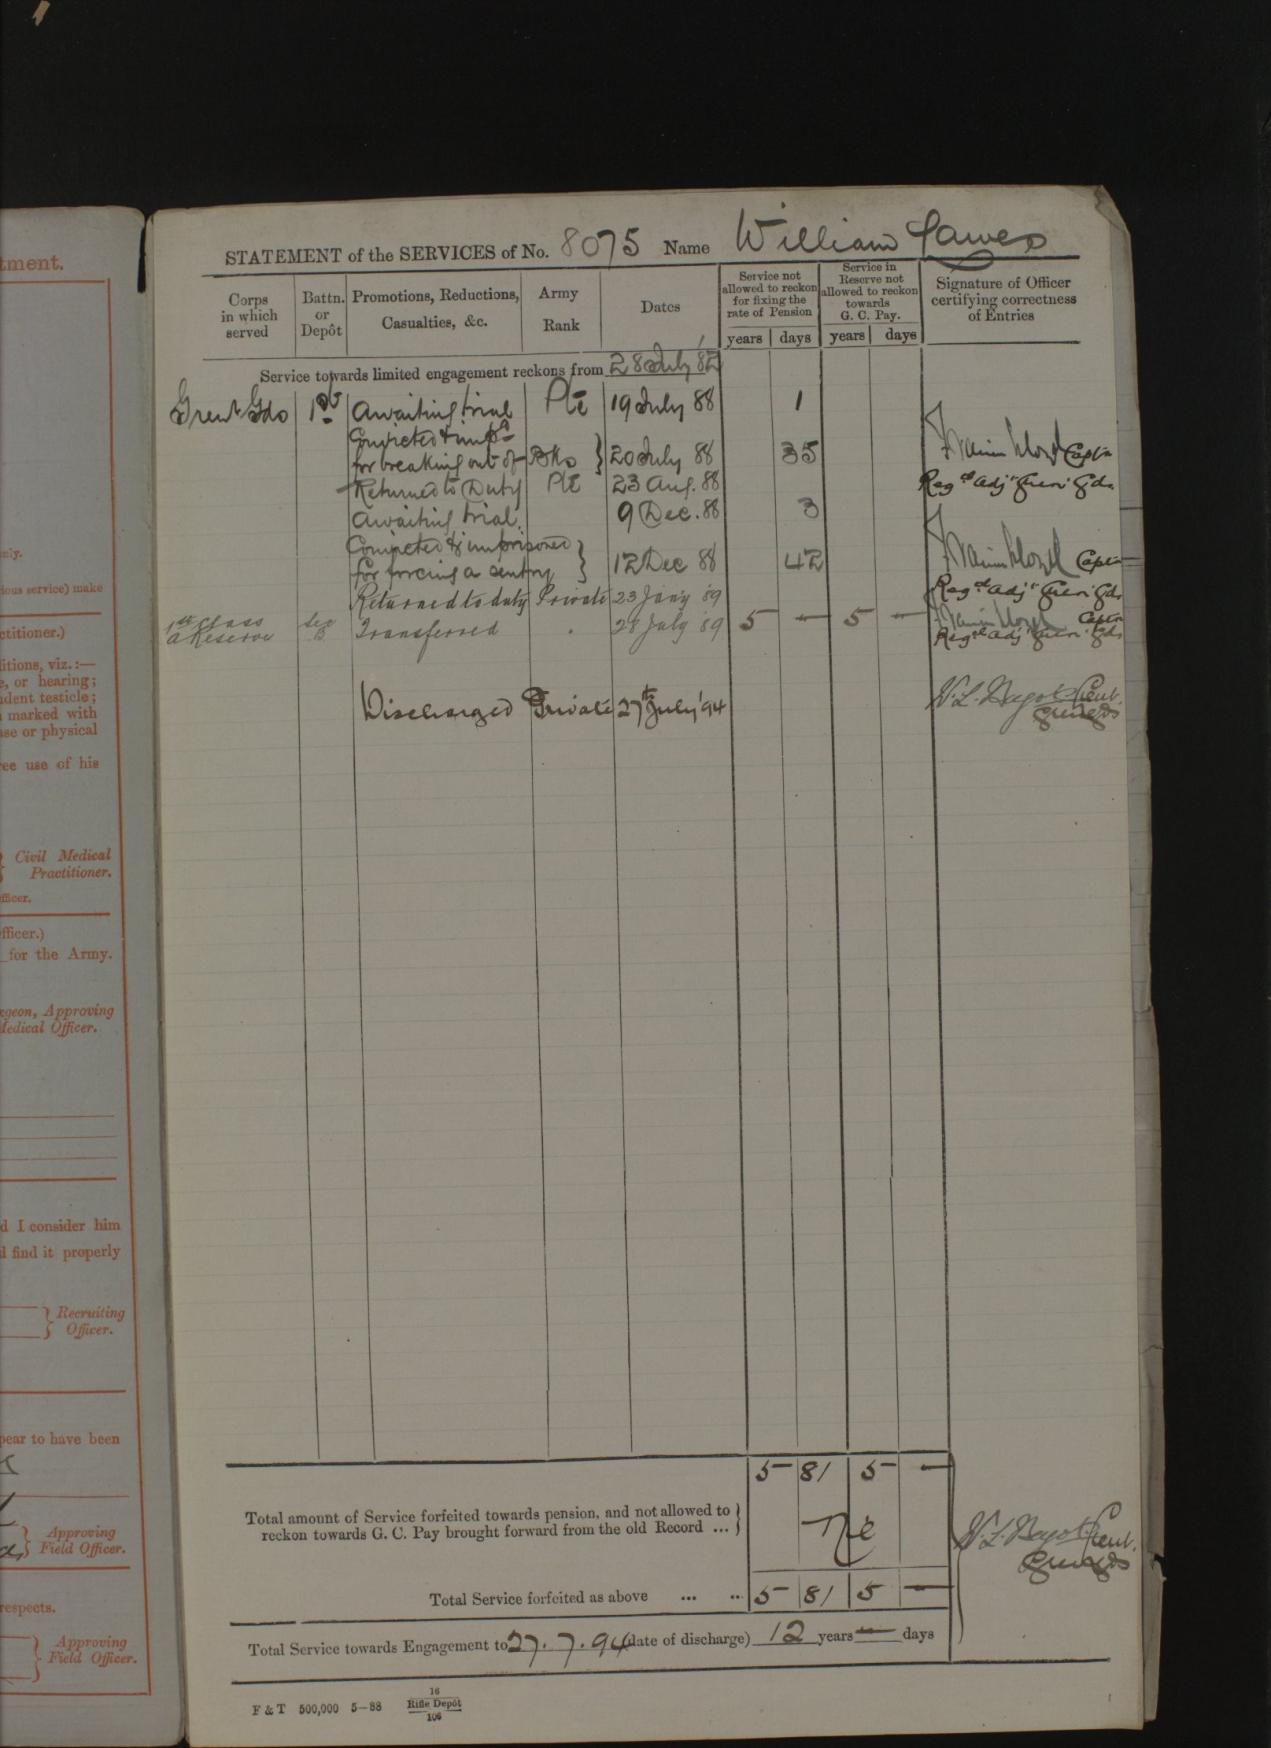 STATEMENT of the SERVICES of No. 8075 Name William Lawes
Corps in which served
Battn. or Depôt
Promotions, Reductions, Casualties, &c.
Army Rank
Dates
Service not allowed to reckon for fixing the rate of Pension
years days
Service in Reserve not allowed to reckon towards G. C. Pay.
years days
Signature of Officer certifying correctness of Entries
Service towards limited engagement reckons from 28 July '82
Gren Gds 1st Awaiting trial Pte 19 July 88 1
Convicted & impd
for breaking out of Bks } 20 July 88 35 Captn
Returned to Duty Pte 23 Aug. 88 Regtl Adjt Gren Gds.
Awaiting trial. 9 Dec. 88 3
Convicted & imprisoned
for forcing a sentry } 12 Dec 88 42 Captn
Returned to duty Private 23 Jany 89 Regtl Adjt Gren Gds
1st Class
A Reserve Sec B Transferred 28 July 89 5 — 5 — Captn
Regtl Adjt Gren Gds
Discharged Private 27th July '94 Lieut.
Gren Gds
5 81 5 —
Total amount of Service forfeited towards pension, and not allowed to
reckon towards G. C. Pay brought forward from the old Record ... }
Lieut.
Gren Gds
Total Service forfeited as above ... ... 5 81 5 —
Total Service towards Engagement to 27.7.94 (date of discharge) 12 years — days
F & T 500,000 5—88
16
Rifle Depôt
106
tment.
nly.
ious service) make
ctitioner.)
litions, viz. :—
e, or hearing;
ndent testicle;
marked with
ase or physical
ree use of his
} Civil Medical
Practitioner.
fficer.
fficer.)
for the Army.
rgeon, Approving
Medical Officer.
d I consider him
d find it properly
} Recruiting
Officer.
pear to have been
} Approving
Field Officer.
respects.
} Approving
Field Officer.